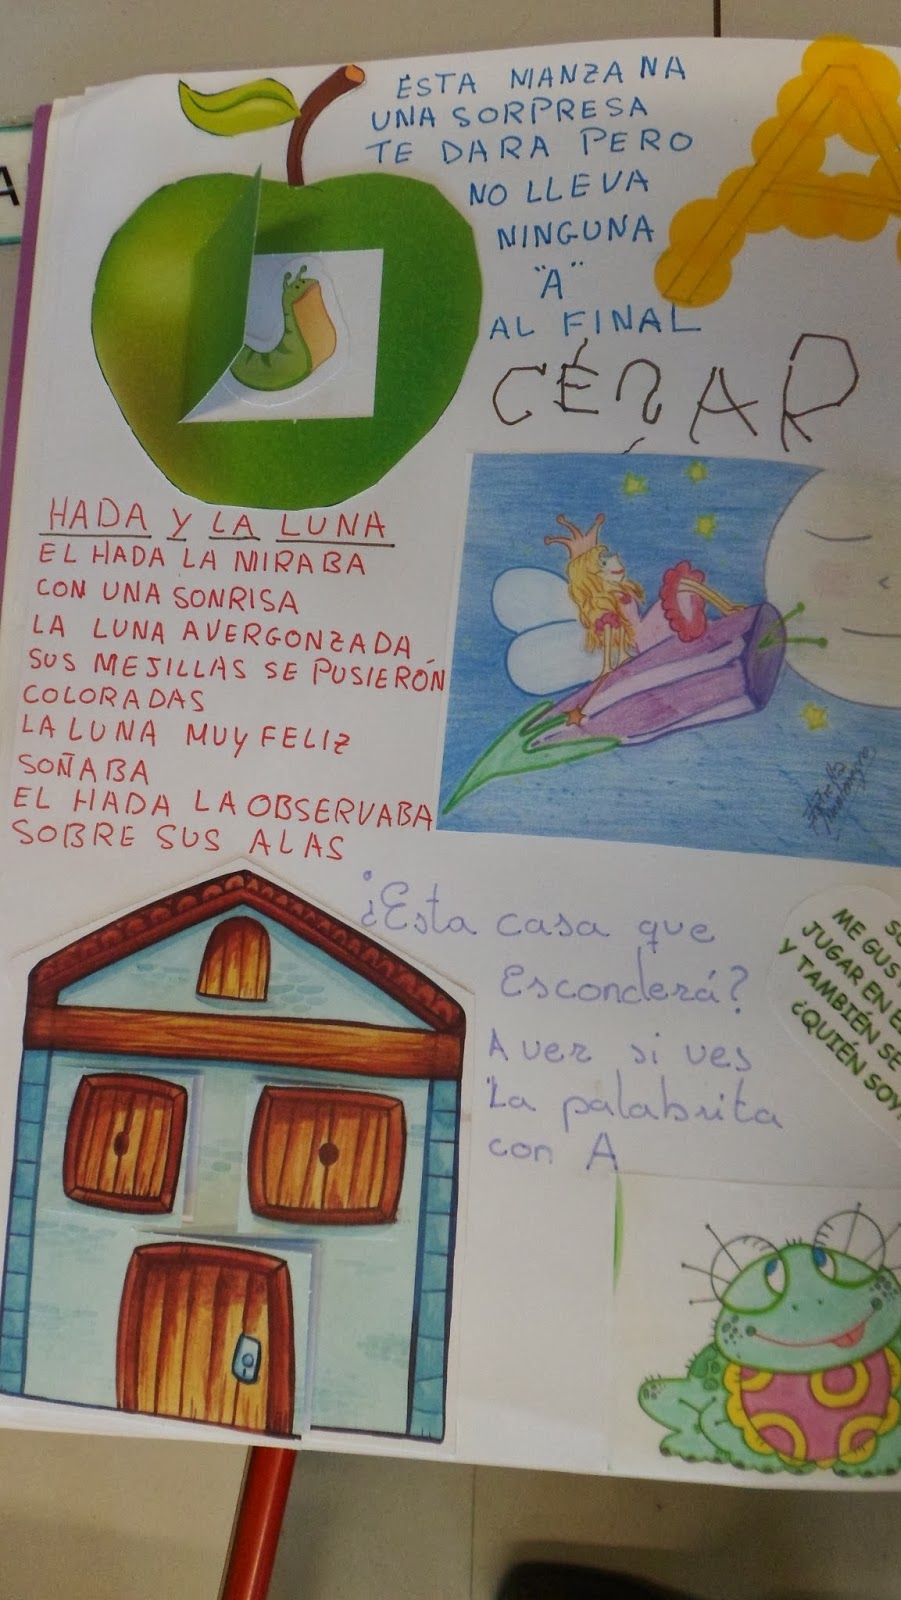 A
ESTA MANZANA
UNA SORPRESA
TE DARA PERO
NO LLEVA
NINGUNA
"A"
AL FINAL
A
CÉSAR
HADA Y LA LUNA
EL HADA LA MIRABA
CON UNA SONRISA
LA LUNA AVERGONZADA
SUS MEJILLAS SE PUSIERÓN
COLORADAS
LA LUNA MUY FELIZ
SOÑABA
EL HADA LA OBSERVABA
SOBRE SUS ALAS
¿Esta casa que
Esconderá?
A ver si ves
La palabrita
con A
ME GUS
JUGAR EN E
Y TAMBIÉN SE
¿QUIÉN SOY?